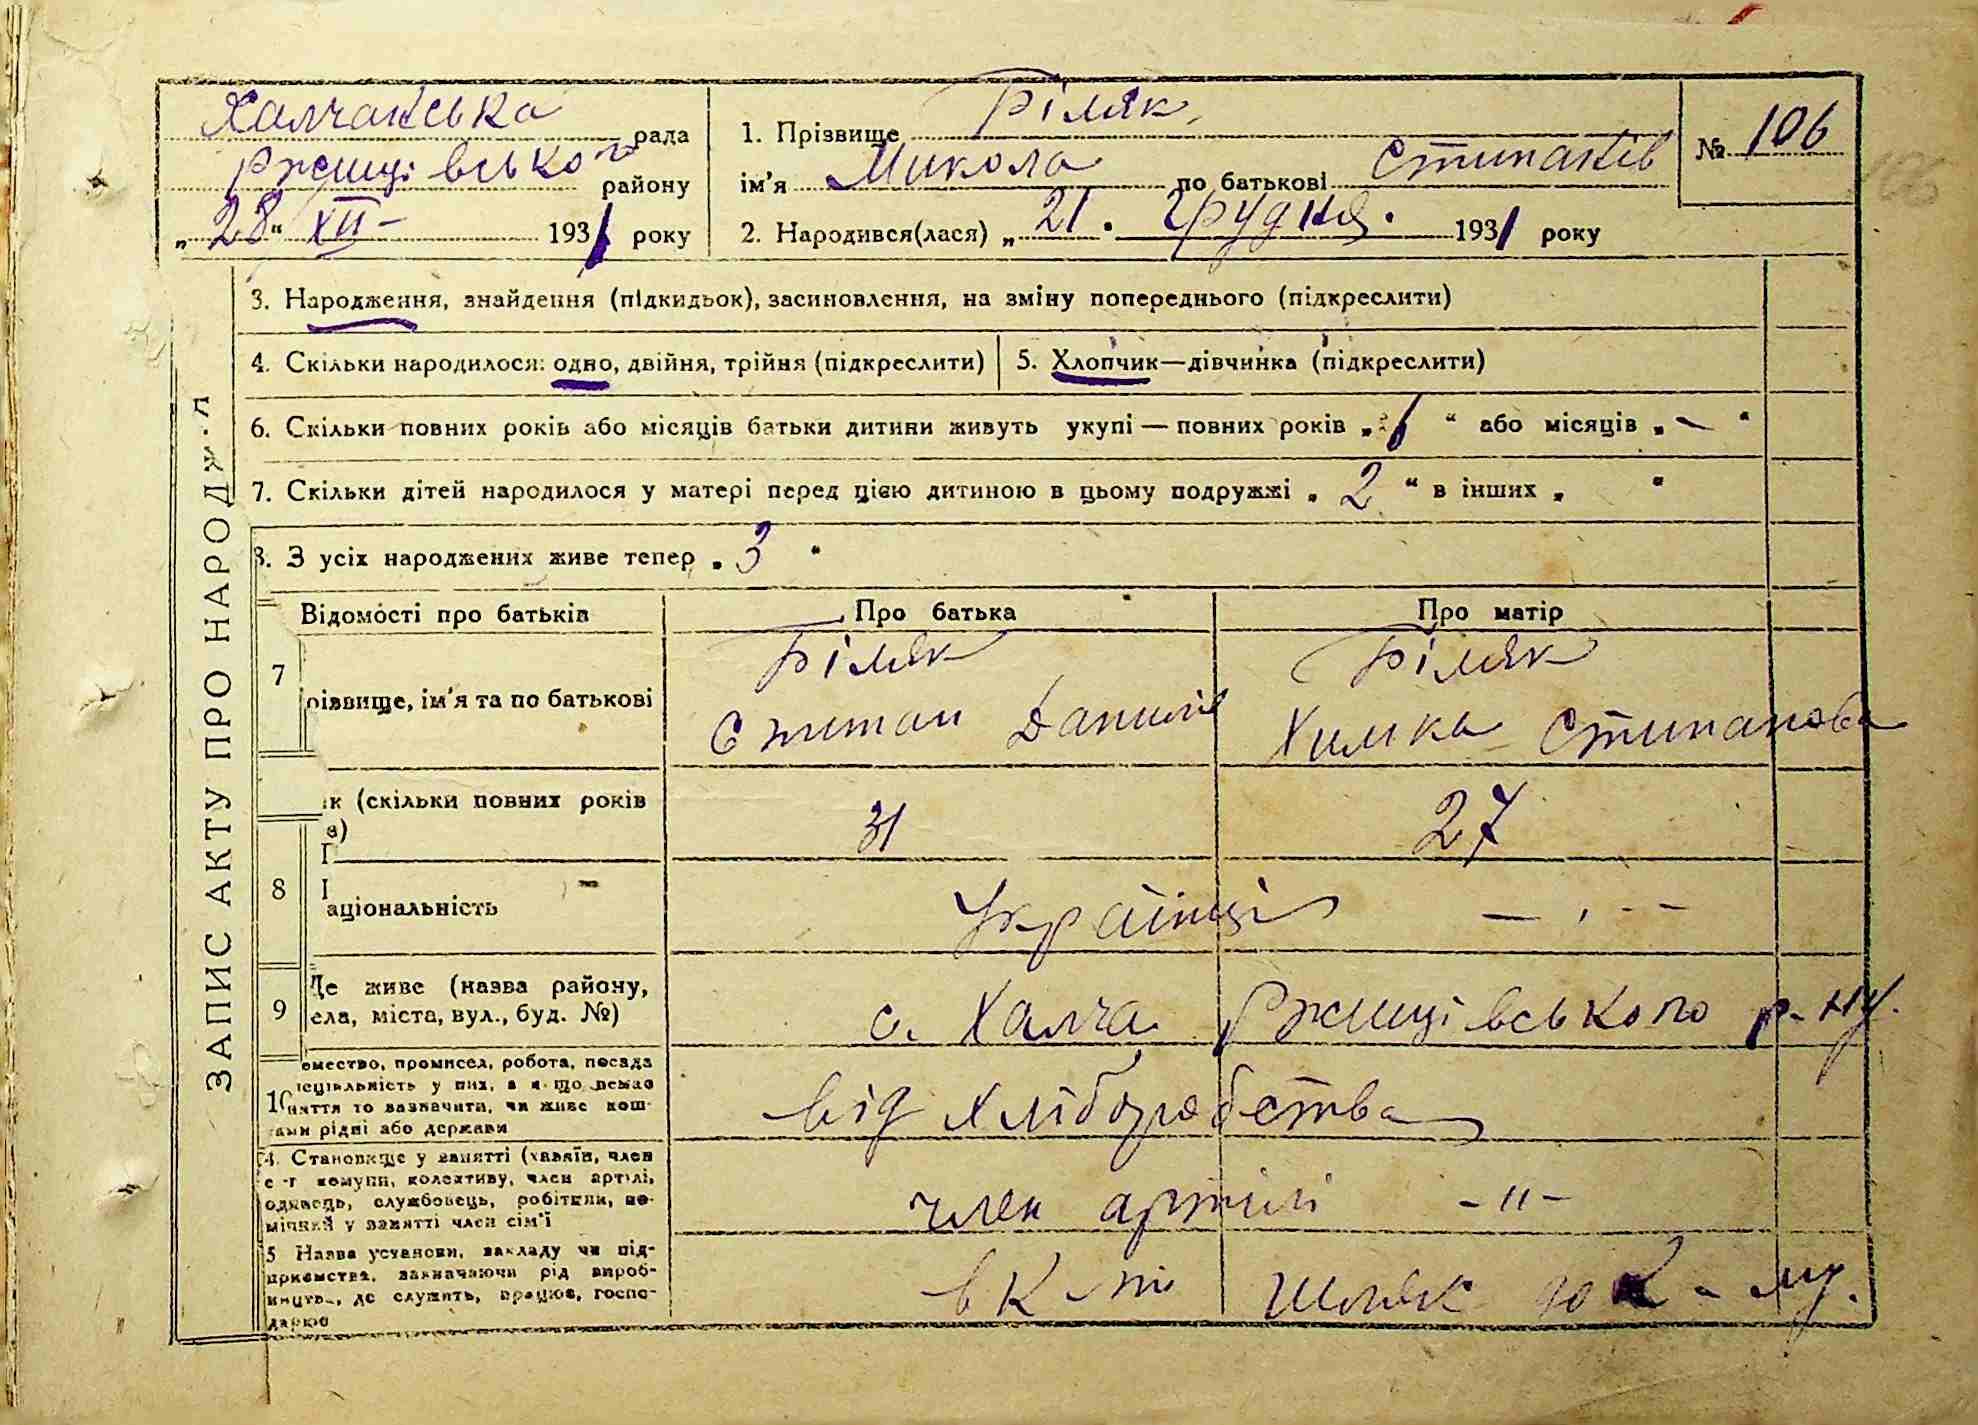 ЗАПИС АКТУ ПРО НАРОДЖ
Халчанська рада
Ржищівського району
„28“ XII - 1931 року
1. Прізвище Ріляк
ім'я Микола по батькові Стипанів
2. Народився(лася) „21. грудня. 1931 року
№ 106
3. Народження, знайдення (підкидьок), засиновлення, на зміну попереднього (підкреслити)
4. Скільки народилося: одно, двійня, трійня (підкреслити) 5. Хлопчик—дівчинка (підкреслити)
6. Скільки повних років або місяців батьки дитини живуть укупі — повних років „ “ або місяців „ – “
7. Скільки дітей народилося у матері перед цією дитиною в цьому подружжі „ 2 “ в інших „ “
8. З усіх народжених живе тепер „ 3 “
Відомості про батьків Про батька Про матір
7 різвище, ім'я та по батькові
Ріляк Ріляк
Стипан Данилів Химка Стипанова
к (скільки повних років 31 27
8 аціональність Українці — . - -
9 Де живе (назва району,
ела, міста, вул., буд. №) с. Халча Ржищівського р-ну.
10 емество, промисел, робота, посада
іеціяльність у них, а якщо немає
няття то вазначити, чи живе кош-
ами рідні або держави
від хліборобства
4. Становище у занятті (хазяїн, член
с-г комуни, колективу, член артілі,
одинець, службовець, робітник, по-
мічний у занятті член сім'ї
член артілі - " -
5 Назва установи, закладу чи під-
приємства, зазначаючи рід вироб-
ництв., де служить, працює, госпо-
дарює
в К-пі Шлях до к-му.